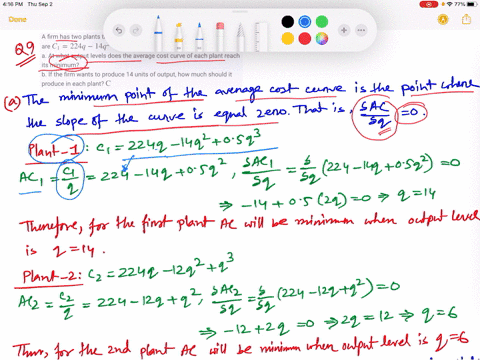 4:16 PM Thu Sep 2
77%
Done
Q9
A firm has two plants t
are C₁ = 224q − 14q²
a. At what output levels does the average cost curve of each plant reach
its minimum?
b. If the firm wants to produce 14 units of output, how much should it
produce in each plant? C
(a) The minimum point of the average cost curve is the point where
the slope of the curve is equal zero. That is, δAC/δq = 0.
Plant-1: C₁ = 224q − 14q² + 0.5q³
AC₁ = C₁/q = 224 − 14q + 0.5q², δAC₁/δq = δ/δq (224 − 14q + 0.5q²) = 0
⇒ −14 + 0.5 (2q) = 0 ⇒ q = 14
Therefore, for the first plant AC will be minimum when output level
is q = 14.
Plant-2: C₂ = 224q − 12q² + q³
AC₂ = C₂/q = 224 − 12q + q², δAC₂/δq = δ/δq (224 − 12q + q²) = 0
⇒ −12 + 2q = 0 ⇒ 2q = 12 ⇒ q = 6
Thus, for the 2nd plant AC will be minimum when output level is q = 6